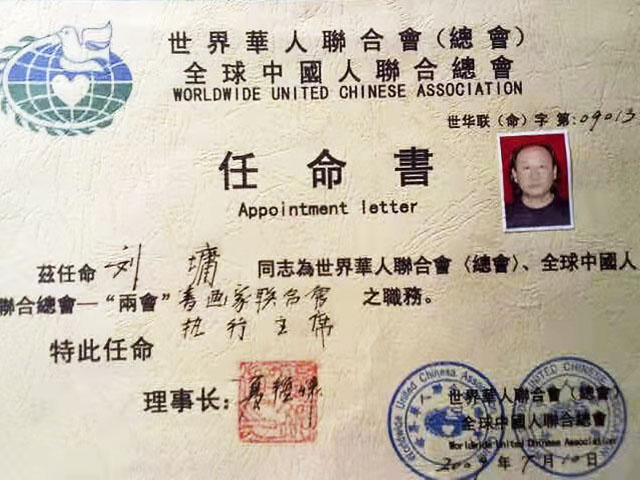 世界華人聯合會（總會）
全球中國人聯合總會
WORLDWIDE UNITED CHINESE ASSOCIATION
世华联（命）字 第:09013
任命書
Appointment letter
茲任命 刘墉 同志為世界華人聯合會〈總會〉、全球中國人
聯合總會—“兩會”書画家联合會 之職務。
执行主席
特此任命
理事长：
世界華人聯合會（總會）
全球中國人聯合總會
Worldwide United Chinese Association
2009年7月10日
Worldwide United Chinese Association
UNITED CHINESE